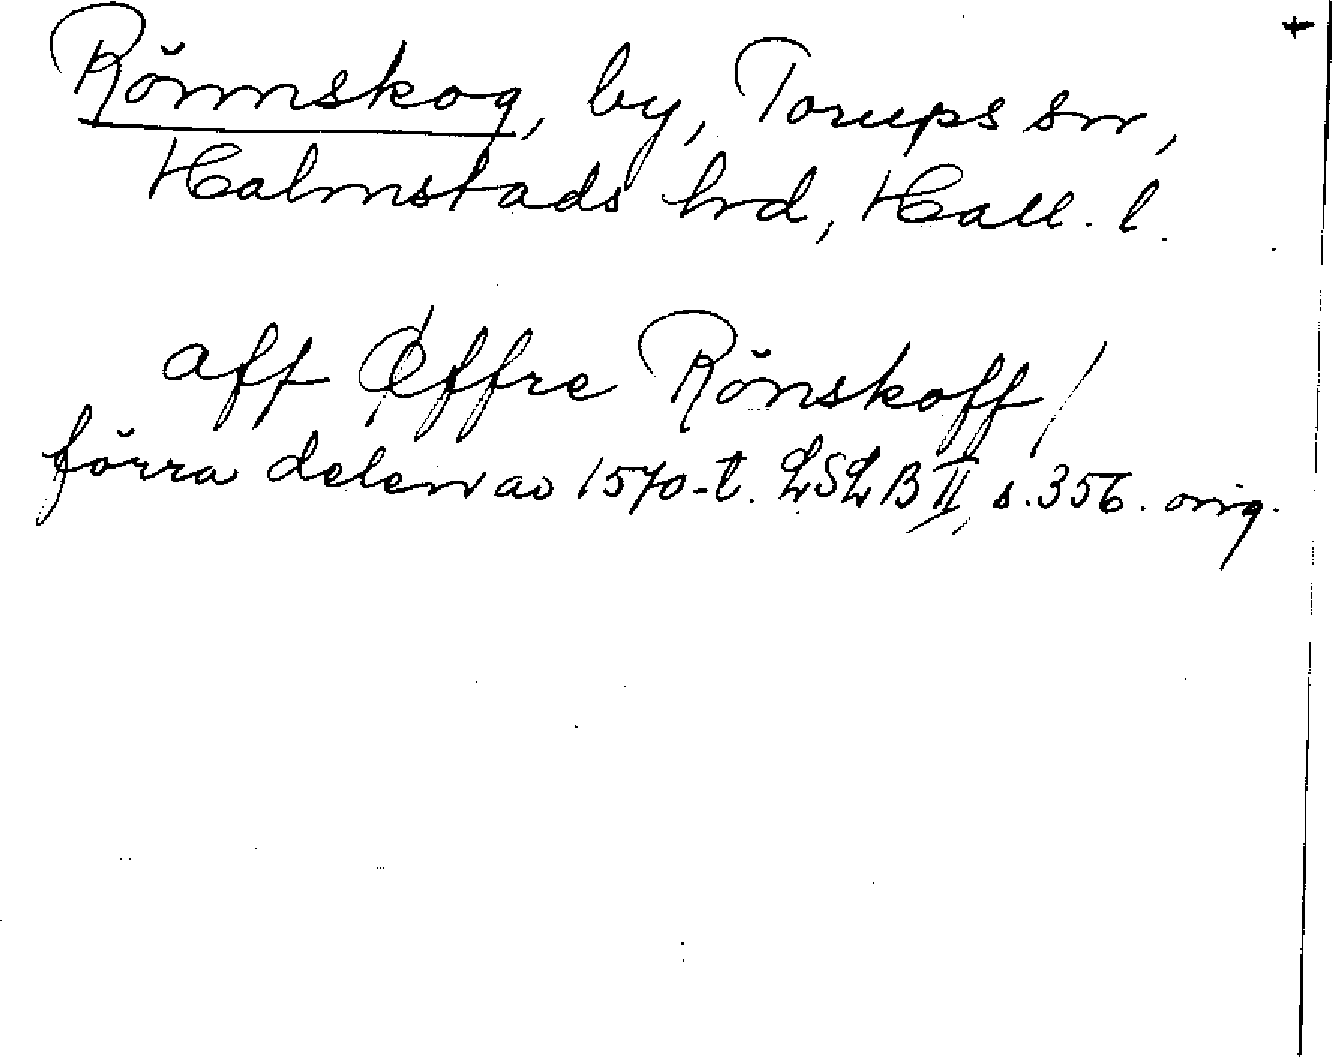 Rönnskog, by, Torups sn,
Halmstads hrd, Hall. l.
aff Øffre Rönskoff/
förra delen av 1570-t. LSLB II, s. 356. orig.